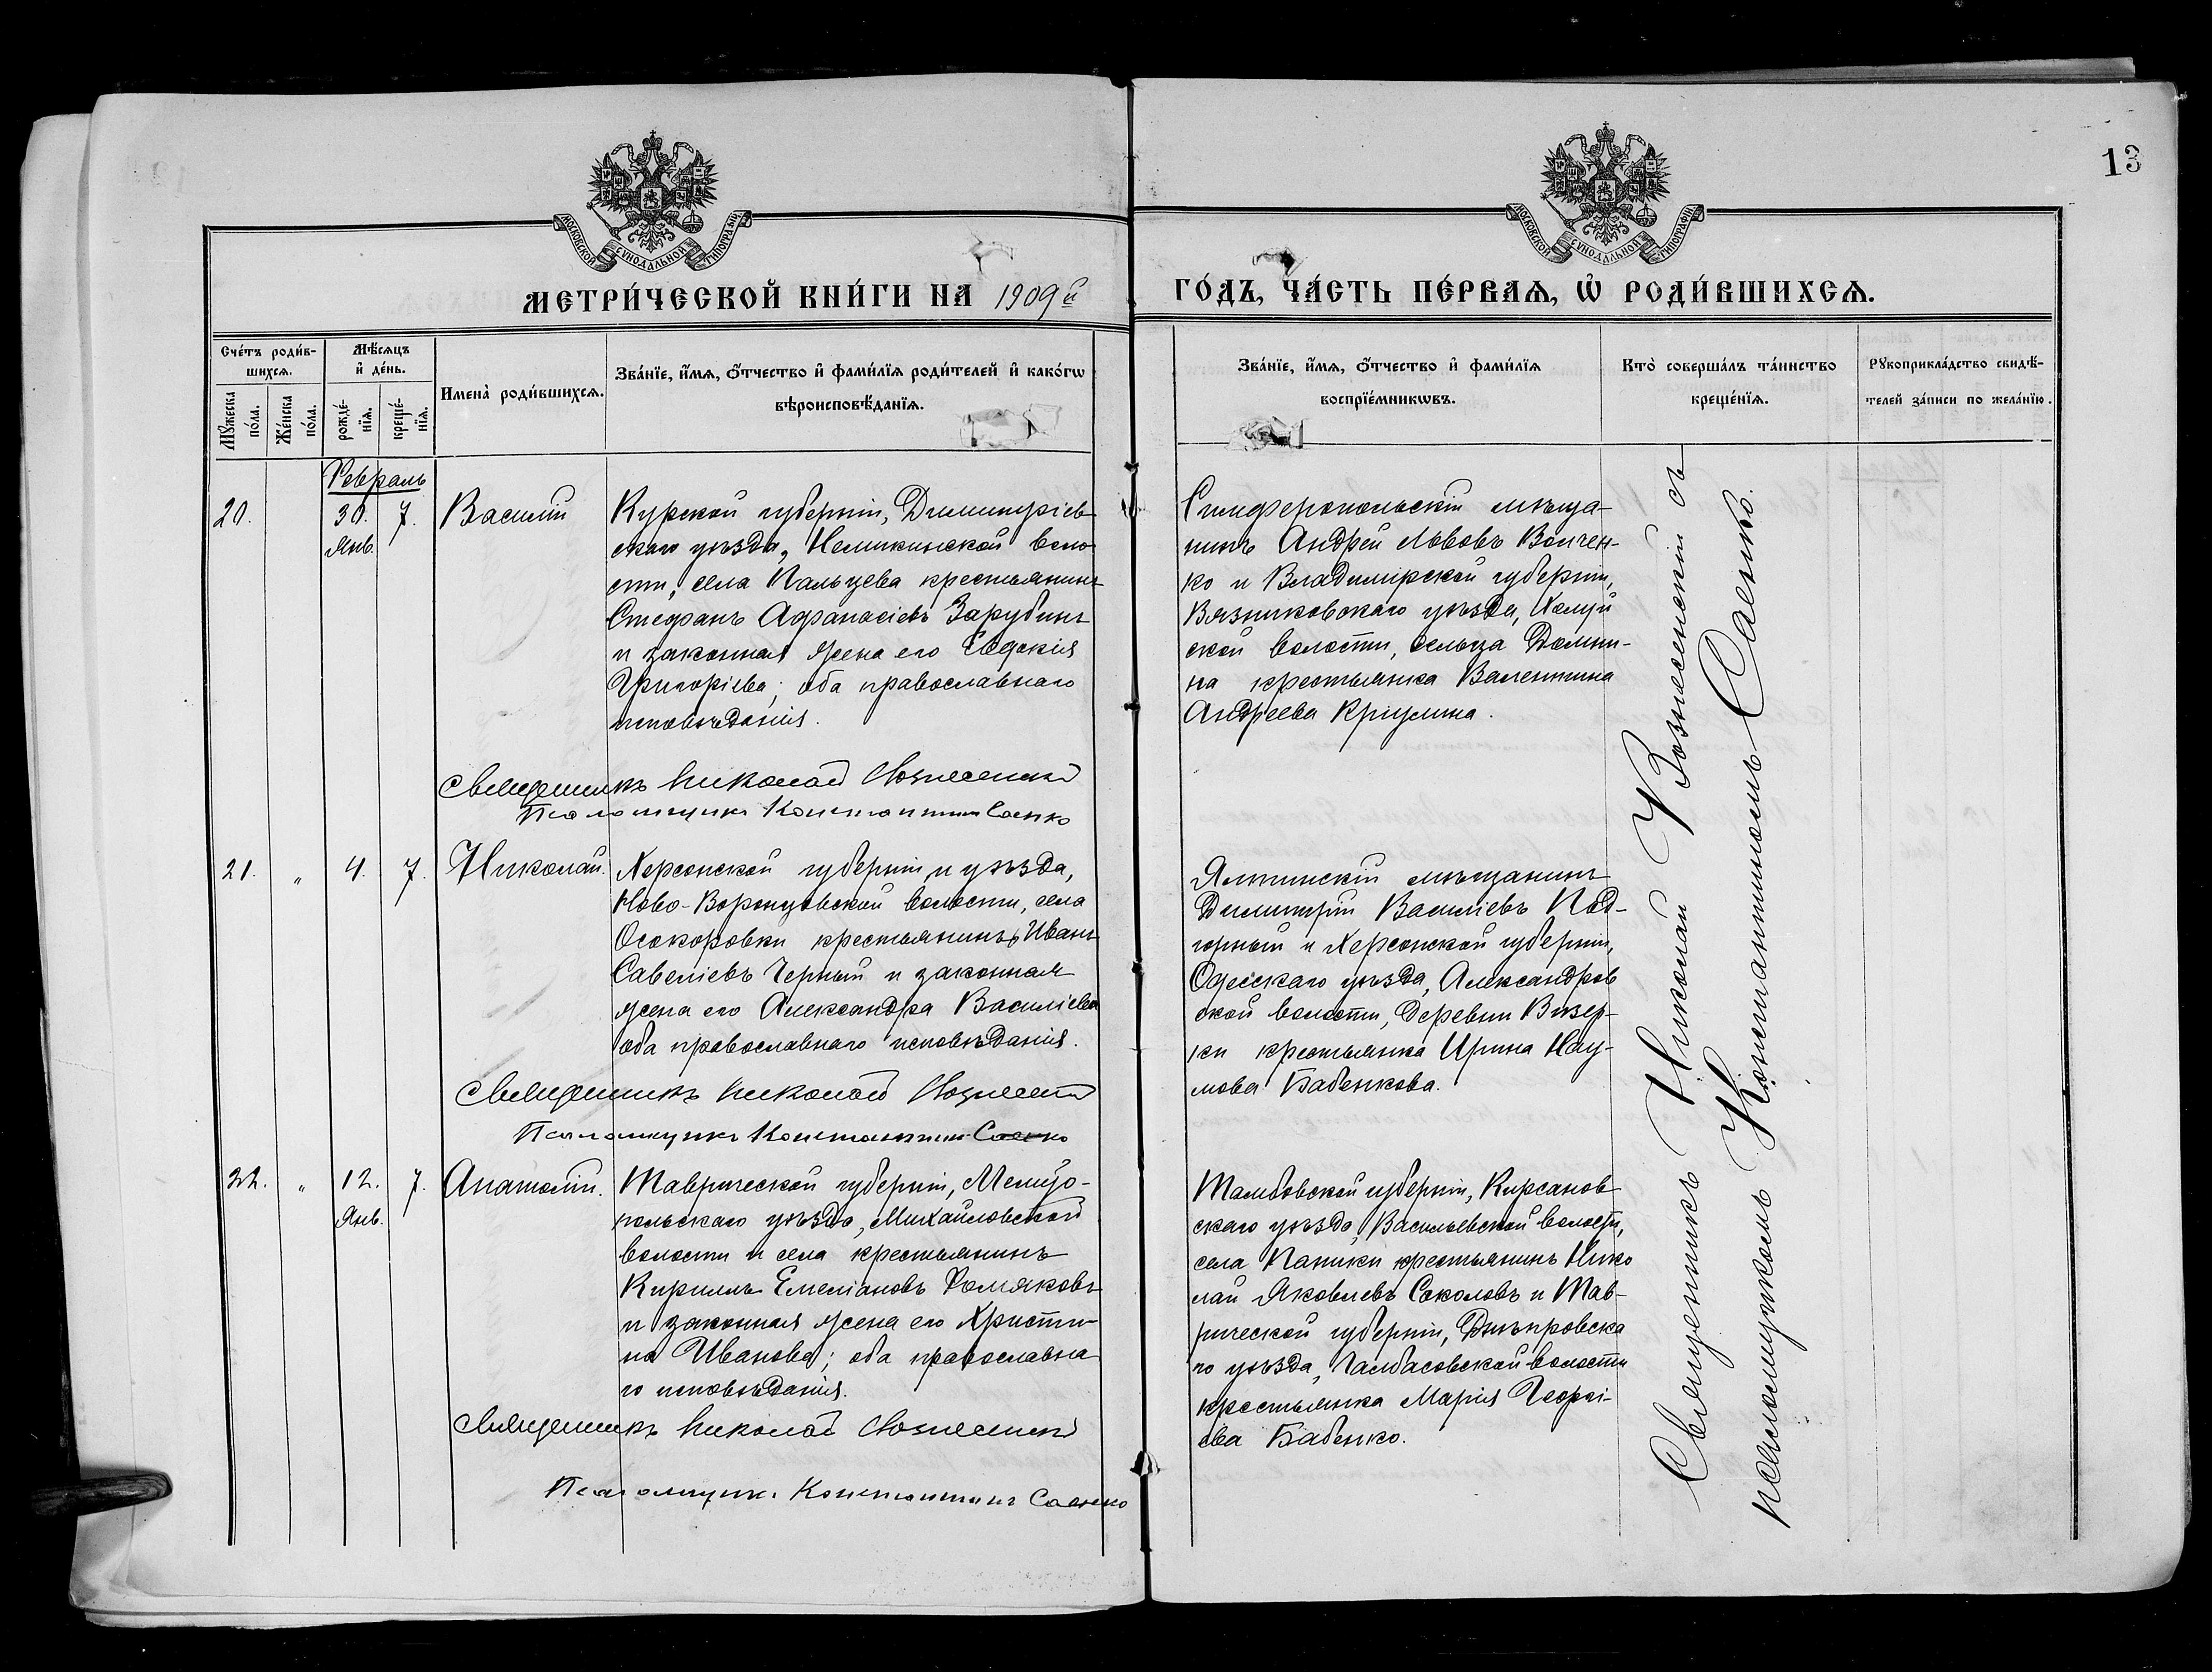 13
МОСКОВСКОЙ СѴНОДАЛЬНОЙ ТИПОГРАФІИ
МОСКОВСКОЙ СѴНОДАЛЬНОЙ ТИПОГРАФІИ
МЕТРИ́ЧЕСКОЙ КНИ́ГИ НА 1909й
ГО́ДЪ, ЧА́СТЬ ПЕ́РВАѦ, Ѡ҆ РОДИ́ВШИХСѦ.
Сче́тъ роди́в-
шихсѧ.
Мꙋ́жеска
по́ла.
Же́нска
по́ла.
Мѣ́сѧцъ
и҆ де́нь.
рожде́-
нїѧ.
креще́-
нїѧ.
Имена̀ роди́вшихсѧ.
Зва́нїе, и҆́мѧ, ѻ҆́тчество и҆ фами́лїѧ роди́телей и҆ како́гѡ
вѣроисповѣ́данїѧ.
Зва́нїе, и҆́мѧ, ѻ҆́тчество и҆ фами́лїѧ
воспрїе́мникѡвъ.
Кто̀ соверша́лъ та́инство
креще́нїѧ.
Рꙋкоприкла́дство свидѣ́-
телей за́писи по жела́нїю.
Февраль
20.
30.
Янв.
7.
Василій
Курской губерніи, Димитріев-
скаго уѣзда, воло-
сти, села Пальцева крестьянинъ
Стефанъ Афанасіевъ Зарубинъ
и законная жена его Евдокія
Григоріева; оба православнаго
исповѣданія.
Священникъ Николай Вознесенскій
Псаломщикъ Константинъ Саенко
Симферопольскій мѣща-
нинъ Андрей Львовъ Волчен-
ко и Владимірской губерніи,
Вязниковскаго уѣзда, Холуй
ской волости, сельца Домни-
на крестьянка Валентина
Андреева
21.
"
4.
7.
Николай.
Херсонской губерніи и уѣзда,
Ново-Воронцовской волости, села
Осокоровки крестьянинъ Иванъ
Савеліевъ Черный и законная
жена его Александра Василіева
оба православнаго исповѣданія.
Священникъ Николай Вознесенскій
Псаломщикъ Константинъ Саенко
Ялтинскій мѣщанинъ
Димитрій Василіевъ Под-
горный и Херсонской губерніи,
Одесскаго уѣзда, Александров
ской волости, деревни Визер-
ки крестьянка Ирина Нау-
мова Бабенкова.
22.
"
12.
Янв.
7.
Анатолій.
Таврической губерніи, Мелито-
польскаго уѣзда, Михайловской
волости и села крестьянинъ
Кириллъ Емеліановъ Хомяковъ
и законная жена его Христи-
на Иванова; оба православна
го исповѣданія.
Священникъ Николай Вознесенскій
Псаломщикъ Константинъ Саенко
Тамбовской губерніи, Кирсанов
скаго уѣзда, Васильевской волости,
села Паники крестьянинъ Нико
лай Яковлевъ Соколовъ и Тав-
рической губерніи, Днѣпровска
го уѣзда, Чалбасовской волости
крестьянка Марія Георгі-
ева Бабенко.
Священникъ Николай Вознесенскій съ
псаломщикомъ Константиномъ Саенко.